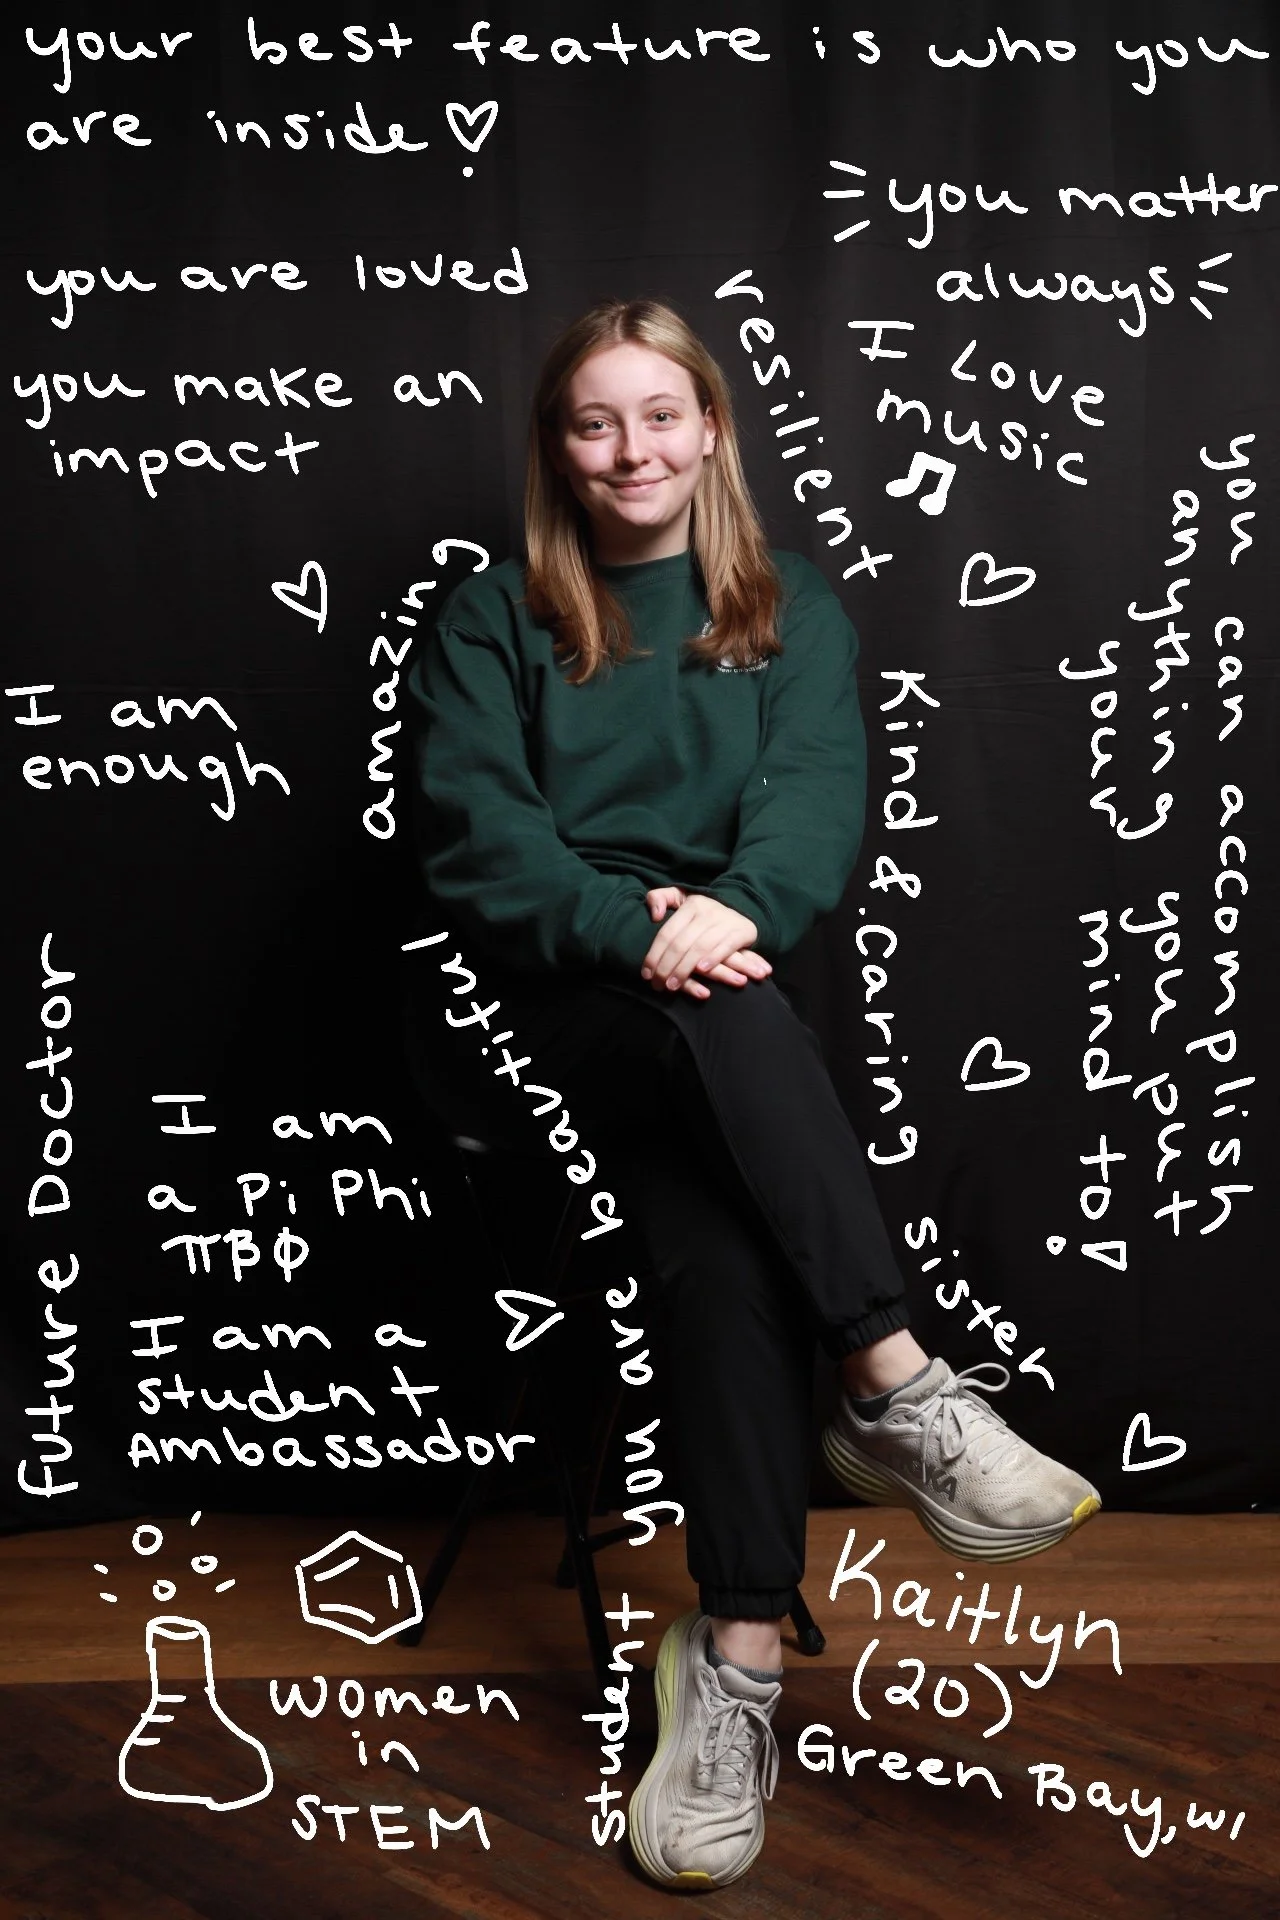 your best feature is who you
are inside
you matter
always
you are loved
you make an
impact
resilient
I Love
music
you can accomplish
anything you put
your mind to!
amazing
I am
enough
Kind & caring
Future Doctor
I am
a Pi Phi
ΠΒΦ
I am a
student
Ambassador
you are beautiful
sister
student
women
in
STEM
Kaitlyn
(20)
Green Bay, WI